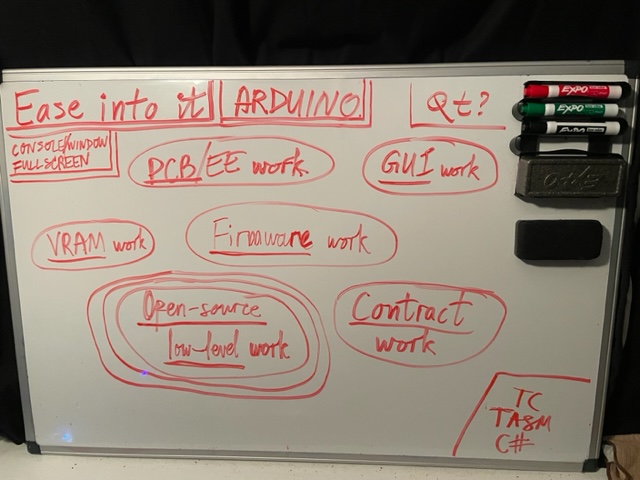 Ease into it
ARDUINO
Qt?
CONSOLE/WINDOW
FULLSCREEN
PCB/EE work
GUI work
VRAM work
Firmware work
Open-source
low-level work
Contract
work
TC
TASM
C#
EXPO
EXPO
EXPO